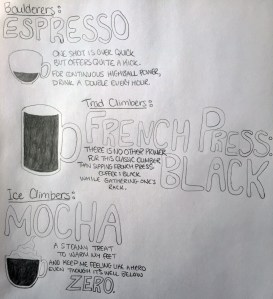 Boulderers:
ESPRESSO
ONE SHOT IS OVER QUICK
BUT OFFERS QUITE A KICK.
FOR CONTINUOUS HIGHBALL POWER,
DRINK A DOUBLE EVERY HOUR.
Trad Climbers:
FRENCH PRESS:
BLACK
THERE IS NO OTHER POWER
FOR THIS CLASSIC CLIMBER
THAN SIPPING FRENCH PRESS
COFFEE BLACK
WHILE GATHERING ONE'S
RACK.
Ice Climbers:
MOCHA
A STEAMY TREAT
TO WARM MY FEET
AND KEEP ME FEELING LIKE A HERO
EVEN THOUGH IT'S WELL BELOW
ZERO.